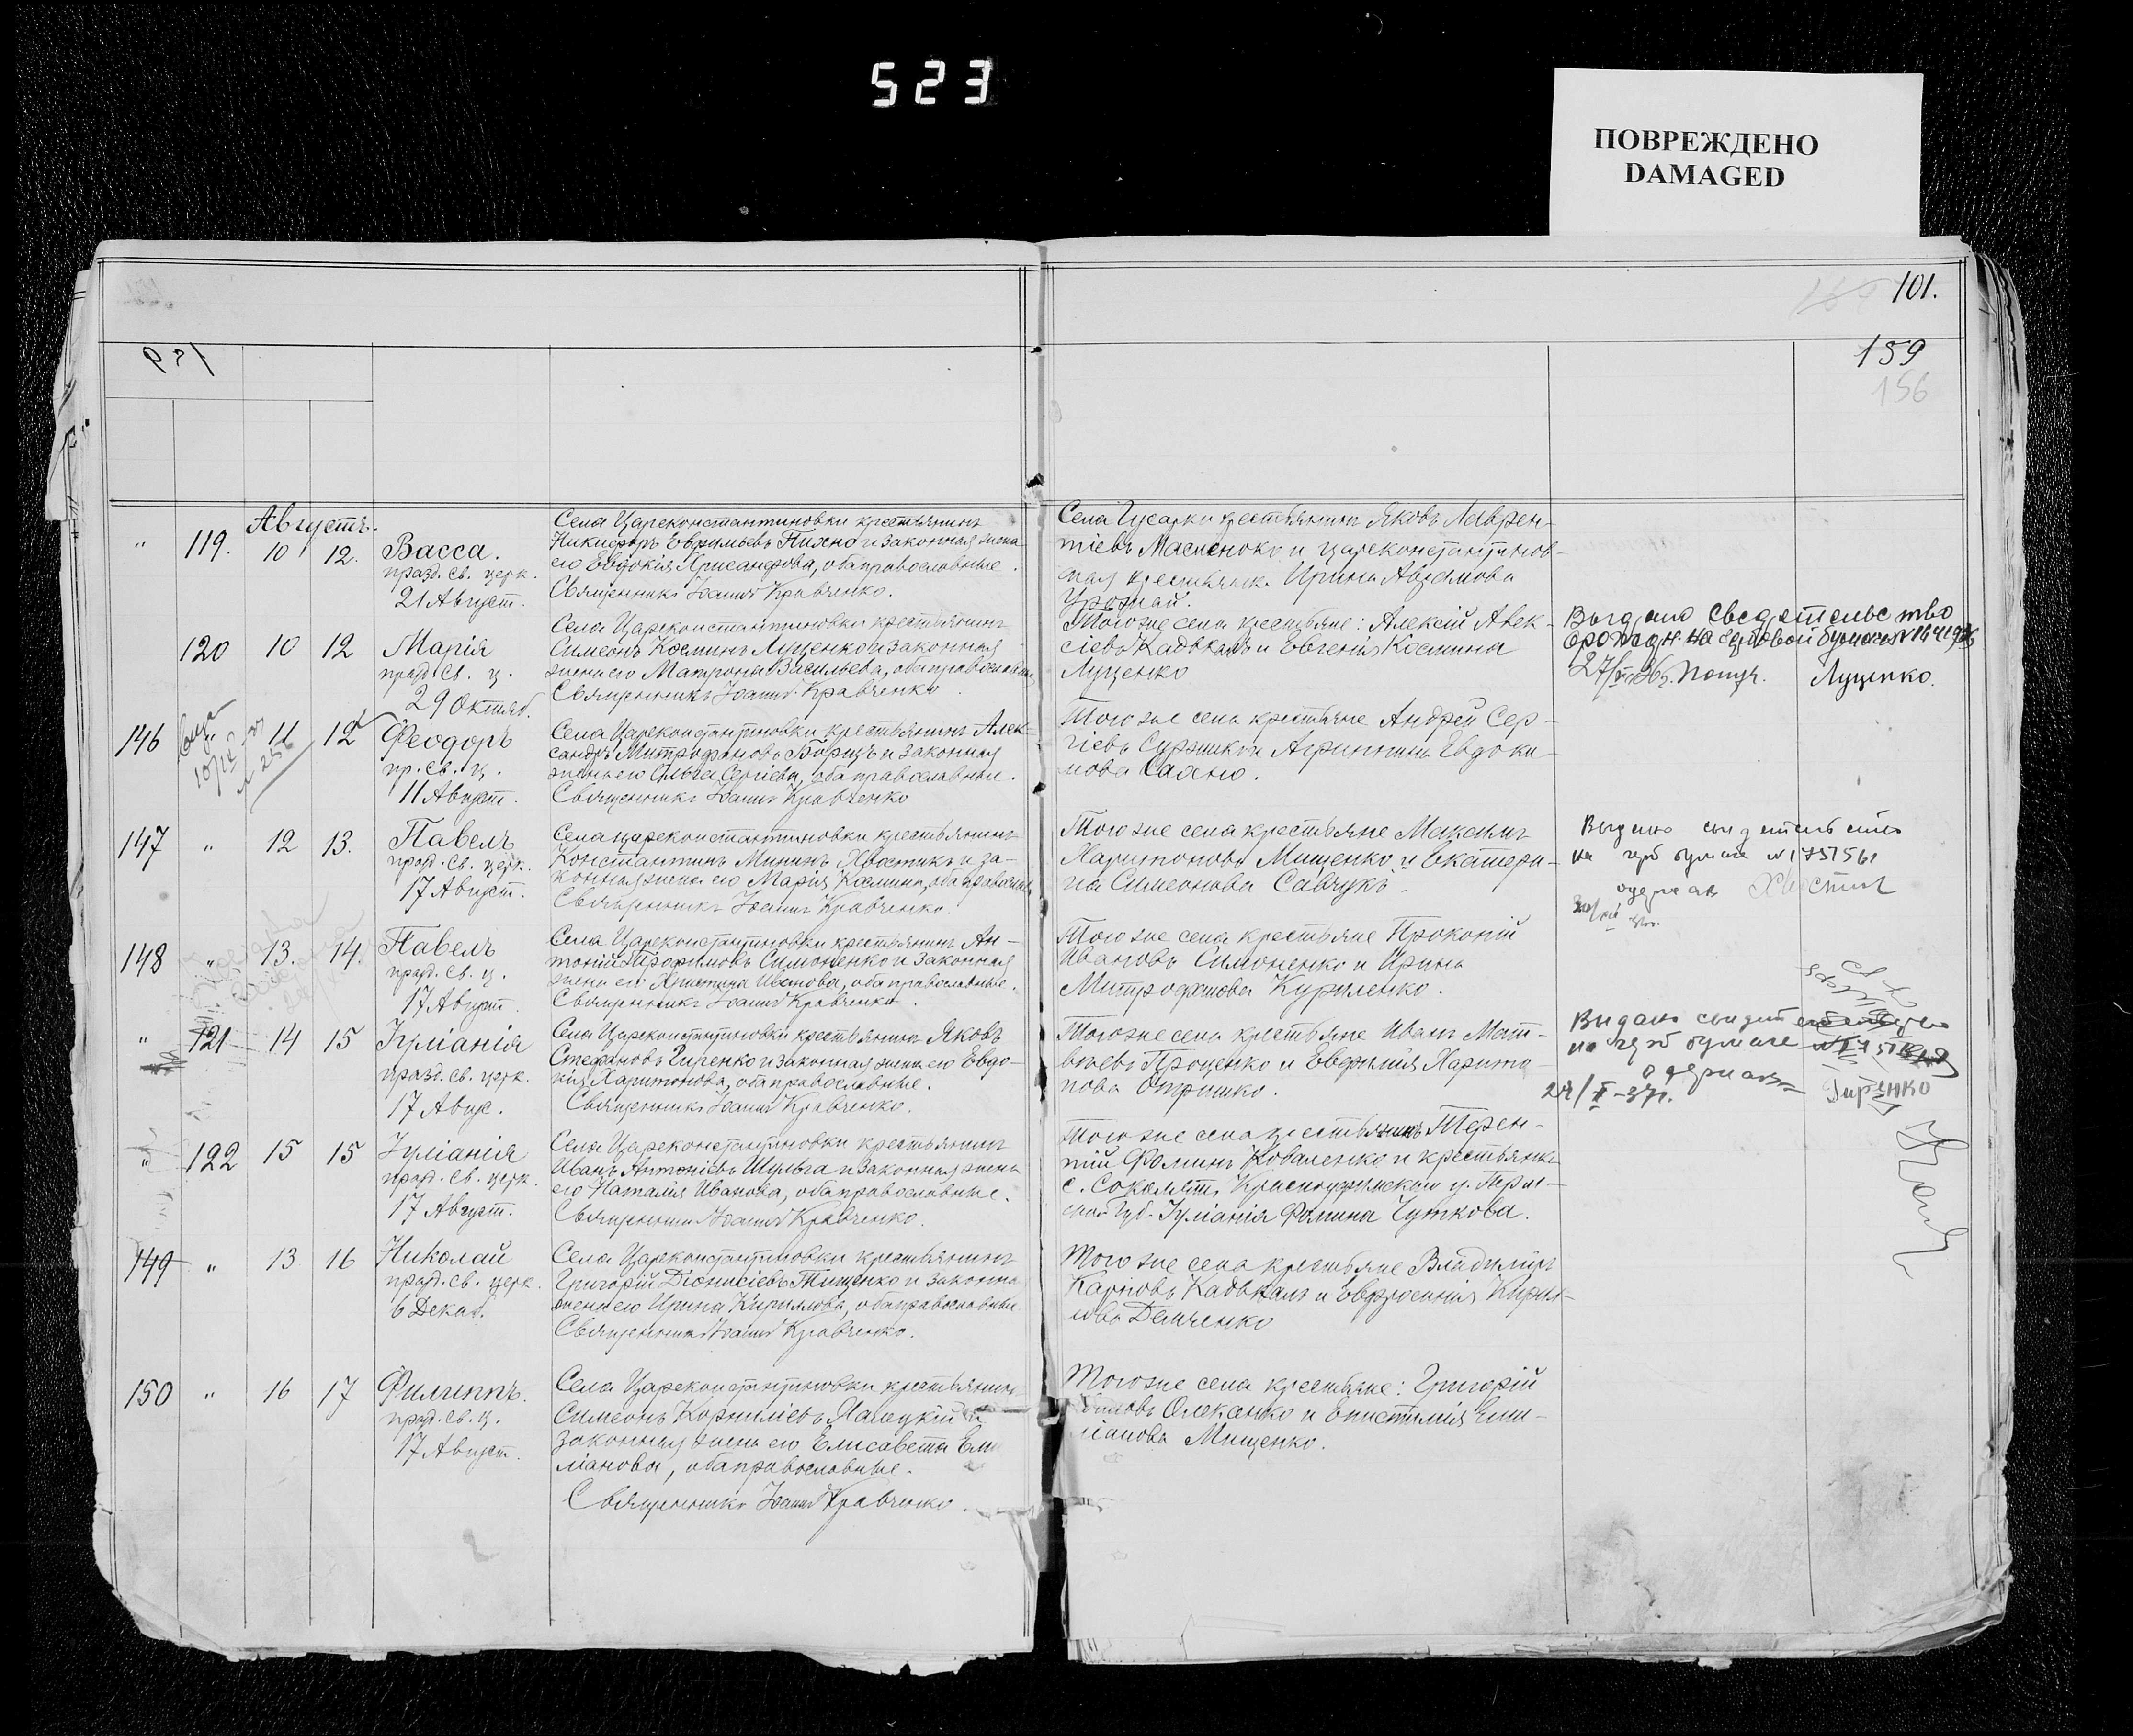 523
ПОВРЕЖДЕНО
DAMAGED
101.
159
156
Августъ.
" 119. 10 12. Васса.
празд. св. церк.
21 Август.
Села Цареконстантиновки крестьянинъ
Никифоръ Евфимьевъ Пихно и законная жена
его Евдокія Хрисанфова, оба православные.
Священникъ Іоаннъ Кравченко.
Села Гусарки крестьянинъ Яковъ Лаврен-
тіевъ Масненко и цареконстантинов-
ская крестьянка Ирина
120 10 12 Марія
празд. св. ц.
29 Октяб.
Села Цареконстантиновки крестьянинъ
Симеонъ Косминъ Луценко и законная
жена его Матрона Васильева, оба православные
Священникъ Іоаннъ Кравченко.
Того же села крестьяне: Алексій Алек-
сіевъ Кадькалъ и Евгенія Космина
Луценко
Выдано свидетельство
о рожден. на
27/ Получ. Луценко.
146 " 11 12 Феодоръ
пр. св. ц.
11 Август.
Села Цареконстантиновки крестьянинъ Алек-
сандръ Митрофановъ Борецъ и законная
жена его Ольга Сергіева, оба православные.
Священникъ Іоаннъ Кравченко
Того же села крестьяне Андрей Сер-
гіевъ и Агрипина Евдоки-
мова Саяно.
147 " 12 13. Павелъ
празд. св. церк.
17 Август.
Села Цареконстантиновки крестьянинъ
Константинъ Мининъ Хвостикъ и за-
конная жена его Марія Космина, оба православные
Священникъ Іоаннъ Кравченко.
Того же села крестьяне Максимъ
Харитоновъ Мищенко и Екатери-
на Симеонова Савчукъ.
Выдано свидетельство
на герб бумаге № 1751561
одержав Хвостик
148 " 13. 14. Павелъ
празд. св. ц.
17 Август.
Села Цареконстантиновки крестьянинъ Ан-
тоній Трофимовъ Симоненко и законная
жена его Христина Иванова, оба православные.
Священникъ Іоаннъ Кравченко.
Того же села крестьяне Прокопій
Ивановъ Симоненко и Ирина
Митрофанова Куриленко.
" 121 14 15 Іуліанія
празд. св. церк.
17 Авгус.
Села Цареконстантиновки крестьянинъ Яковъ
Стефановъ Гиренко и законная жена его Евдо-
кія Харитонова, оба православные.
Священникъ Іоаннъ Кравченко.
Того же села крестьяне Иванъ Мат-
вѣевъ Проценко и Евфимія Харито-
нова Отришко.
Видано
на герб бумаге
одержав Гиренко
" 122 15 15 Іуліанія
празд. св. церк.
17 Август.
Села Цареконстантиновки крестьянинъ
Иванъ Антоніевъ Шульга и законная жена
его Наталія Иванова, оба православные.
Священникъ Іоаннъ Кравченко.
Того же села крестьянинъ Терен-
тій Фоминъ Коваленко и крестьянка
с. Красноуфимскаго у. Перм-
ской губ. Іуліанія Фомина Чуткова.
149 " 13 16 Николай
празд. св. церк.
6 Декаб.
Села Цареконстантиновки крестьянинъ
Григорій Діонисіевъ Тищенко и законная
жена его Ирина Кириллова, оба православные
Священникъ Іоаннъ Кравченко.
Того же села крестьяне Владимиръ
Карповъ Кадькалъ и Евфросинія Кирил-
лова Демченко
150 " 16 17 Филиппъ.
празд. св. ц.
17 Август.
Села Цареконстантиновки крестьянинъ
Симеонъ Корниліевъ и
законная жена его Елисавета Еми
ліанова, оба православные.
Священникъ Іоаннъ Кравченко.
Того же села крестьяне: Григорій
Олексенко и Епистимія Еми-
ліанова Мищенко.